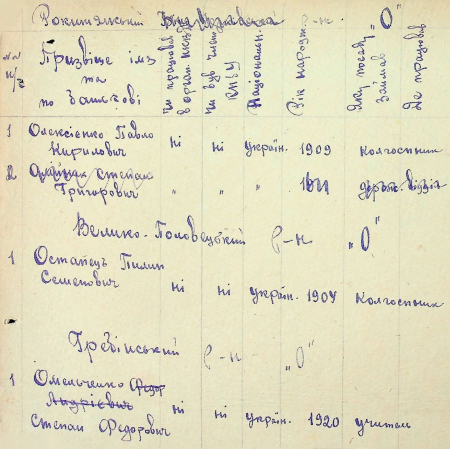 Рокитянський р-н „О"
№№ п/п Прізвище імя та по батькові Чи працював в орган. НКВД Чи був член. КП/б/У Національн. Рік народж. Яку посаду займав Де працював
1 Олексієнко Павло
Кирилович ні ні україн. 1909 колгоспник
2 Степан
Григорович " " "
Велико-Половецький р-н „О"
1 Остапець Пилип
Семенович ні ні україн. 1904 Колгоспник
Гребінський р-н „О"
1 Омельченко Федор
Андрієвич
Степан Федорович ні ні україн. 1920 учитель